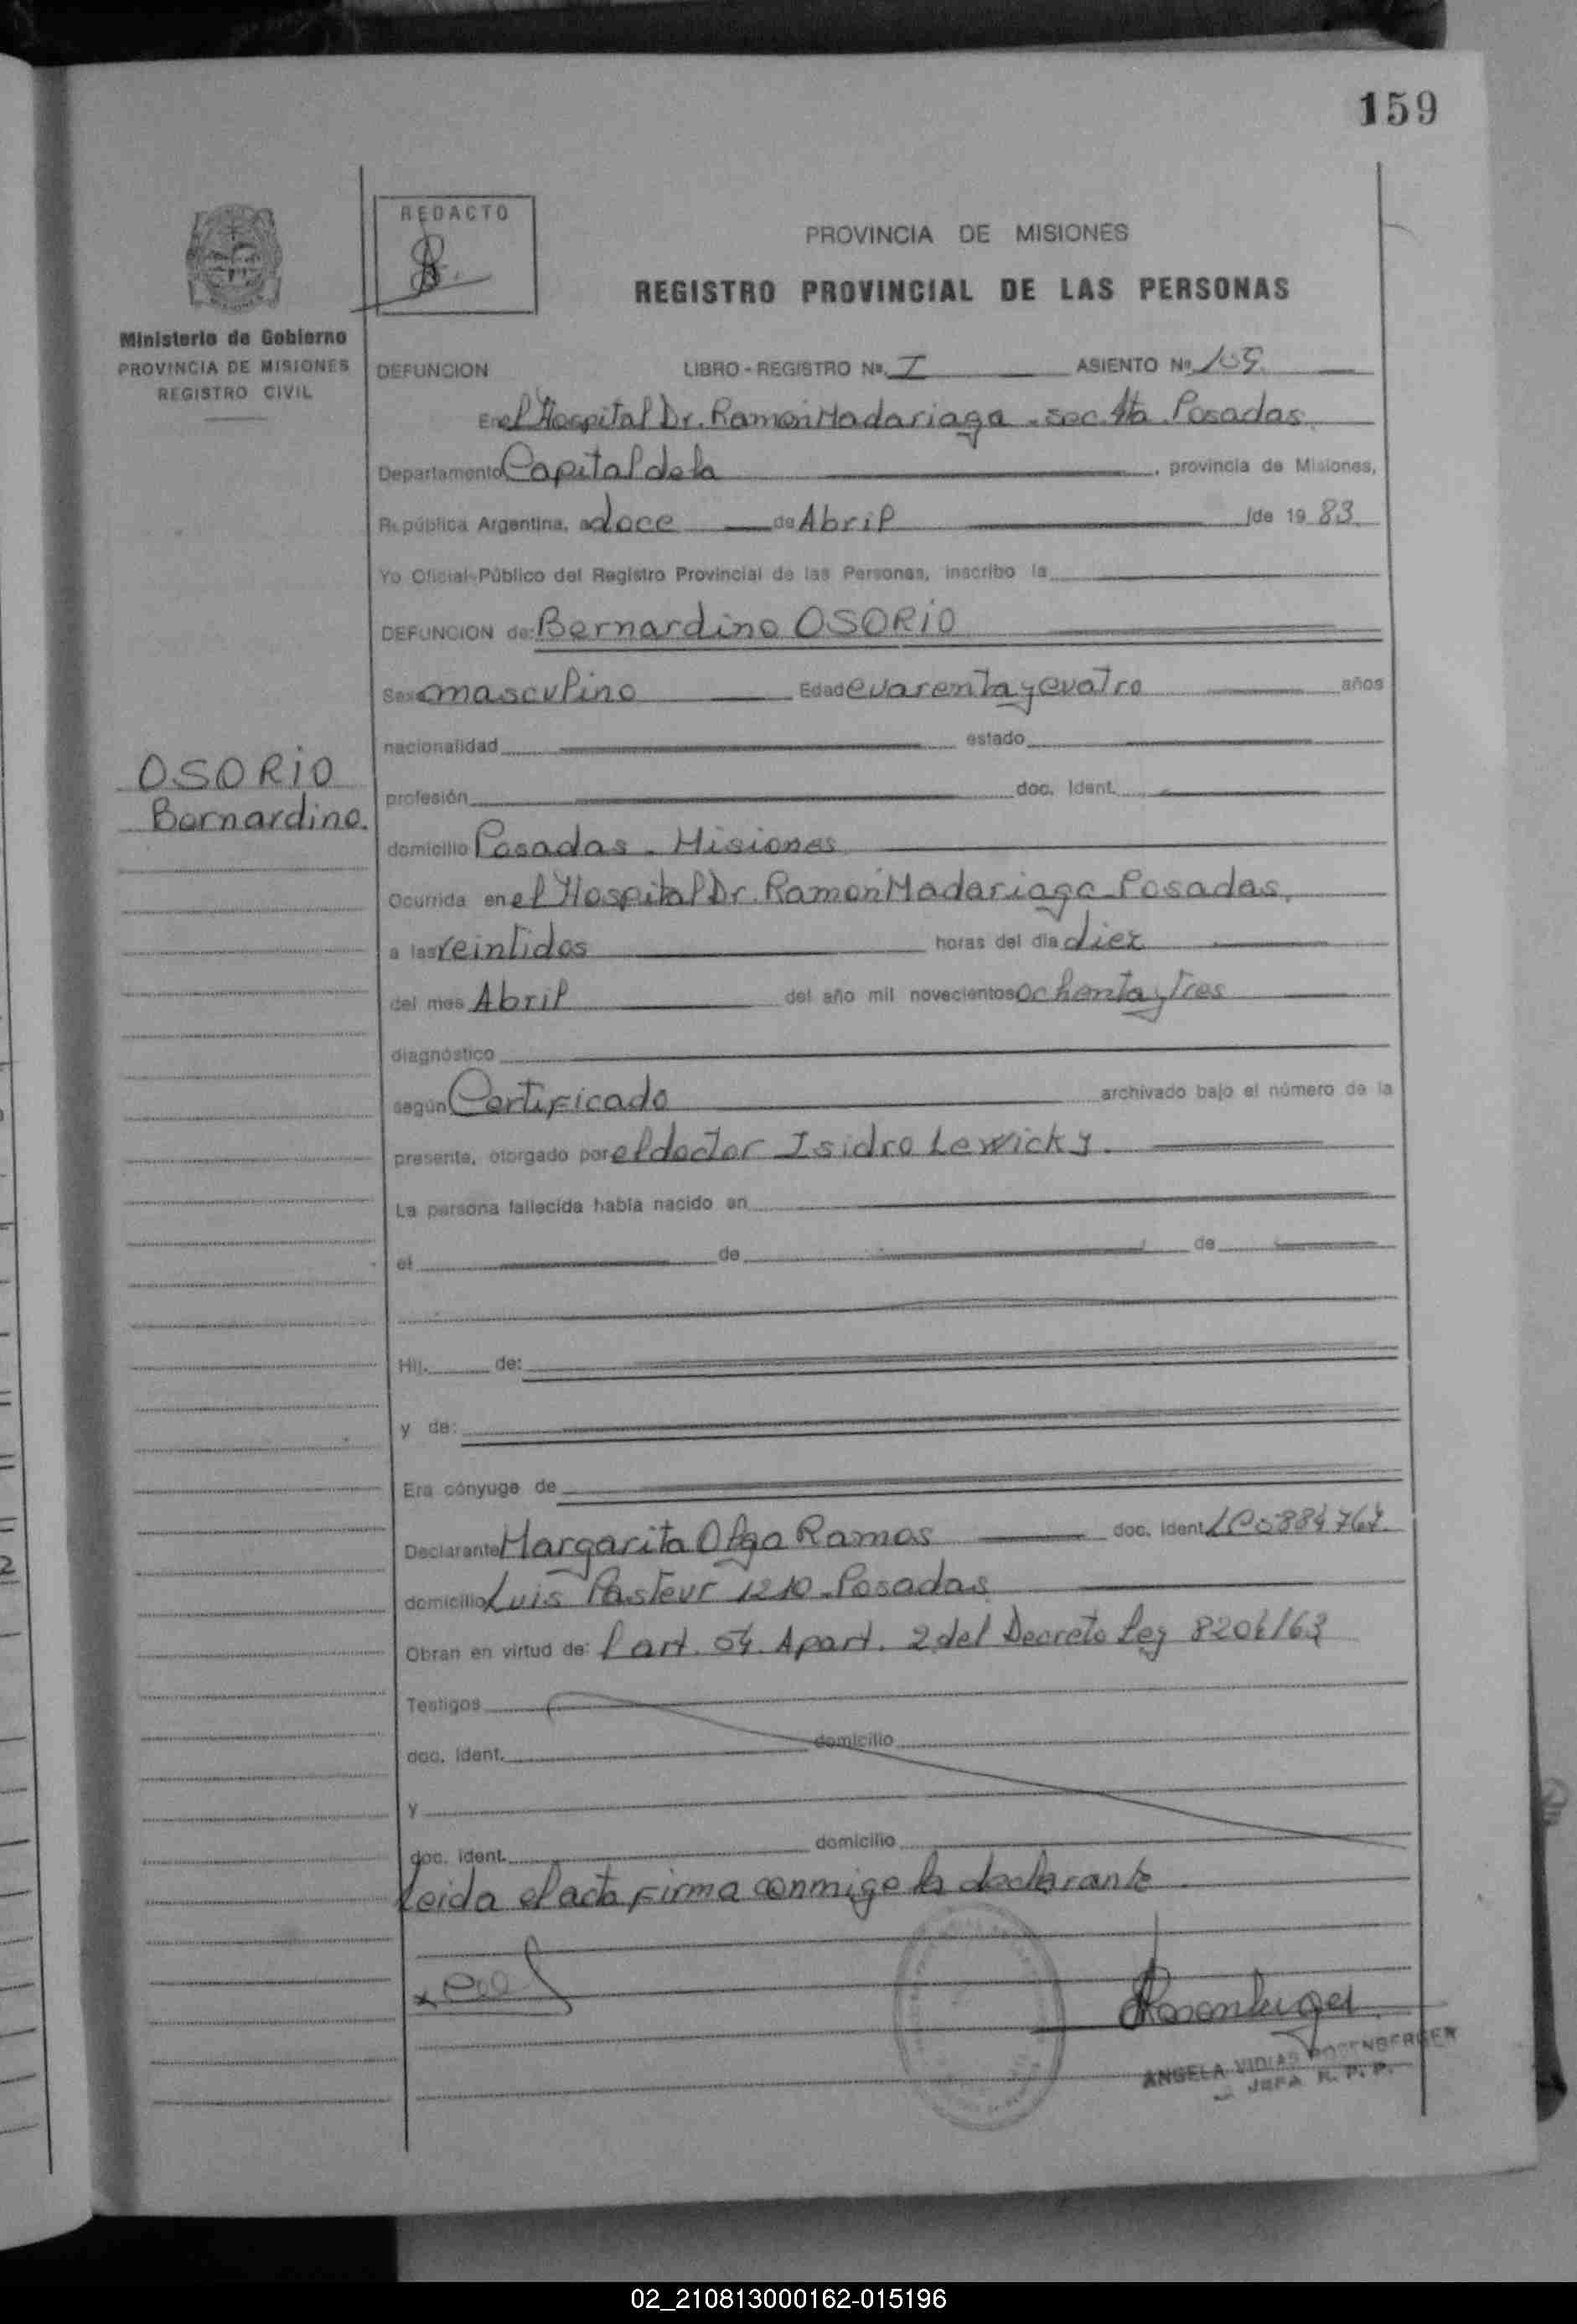 159
REDACTO
PROVINCIA DE MISIONES
REGISTRO PROVINCIAL DE LAS PERSONAS
Ministerio de Gobierno
PROVINCIA DE MISIONES
REGISTRO CIVIL
DEFUNCION LIBRO - REGISTRO Nº. I ASIENTO Nº 159
En el Hospital Dr. Ramón Madariaga - sec. 4ta. Posadas
Departamento Capital de la, provincia de Misiones,
República Argentina, a doce de Abril de 1983
Yo Oficial Público del Registro Provincial de las Personas, inscribo la
DEFUNCION de: Bernardino OSORIO
Sexo masculino Edad cuarenta y cuatro años
nacionalidad estado
OSORIO
Bernardino.
profesión doc. Ident.
domicilio Posadas - Misiones
Ocurrida en el Hospital Dr. Ramón Madariaga - Posadas,
a las veintidos horas del día diez
del mes Abril del año mil novecientos ochenta y tres
diagnóstico
según Certificado archivado bajo el número de la
presente, otorgado por el doctor Isidro Lewicky.
La persona fallecida había nacido en
el de de
Hij. de:
y de:
Era cónyuge de
Declarante Margarita Olga Ramos doc. Ident
domicilio Luis Pasteur 1210 - Posadas
Obran en virtud de: l art. 54. Apart. 2 del Decreto Ley 8204/63
Testigos
doc. Ident. domicilio
y
doc. ident. domicilio
Leida el acta firma conmigo la declarante
ANGELA VIDIAS ROSENBERGER
JEFA R. P. P.
02_210813000162-015196